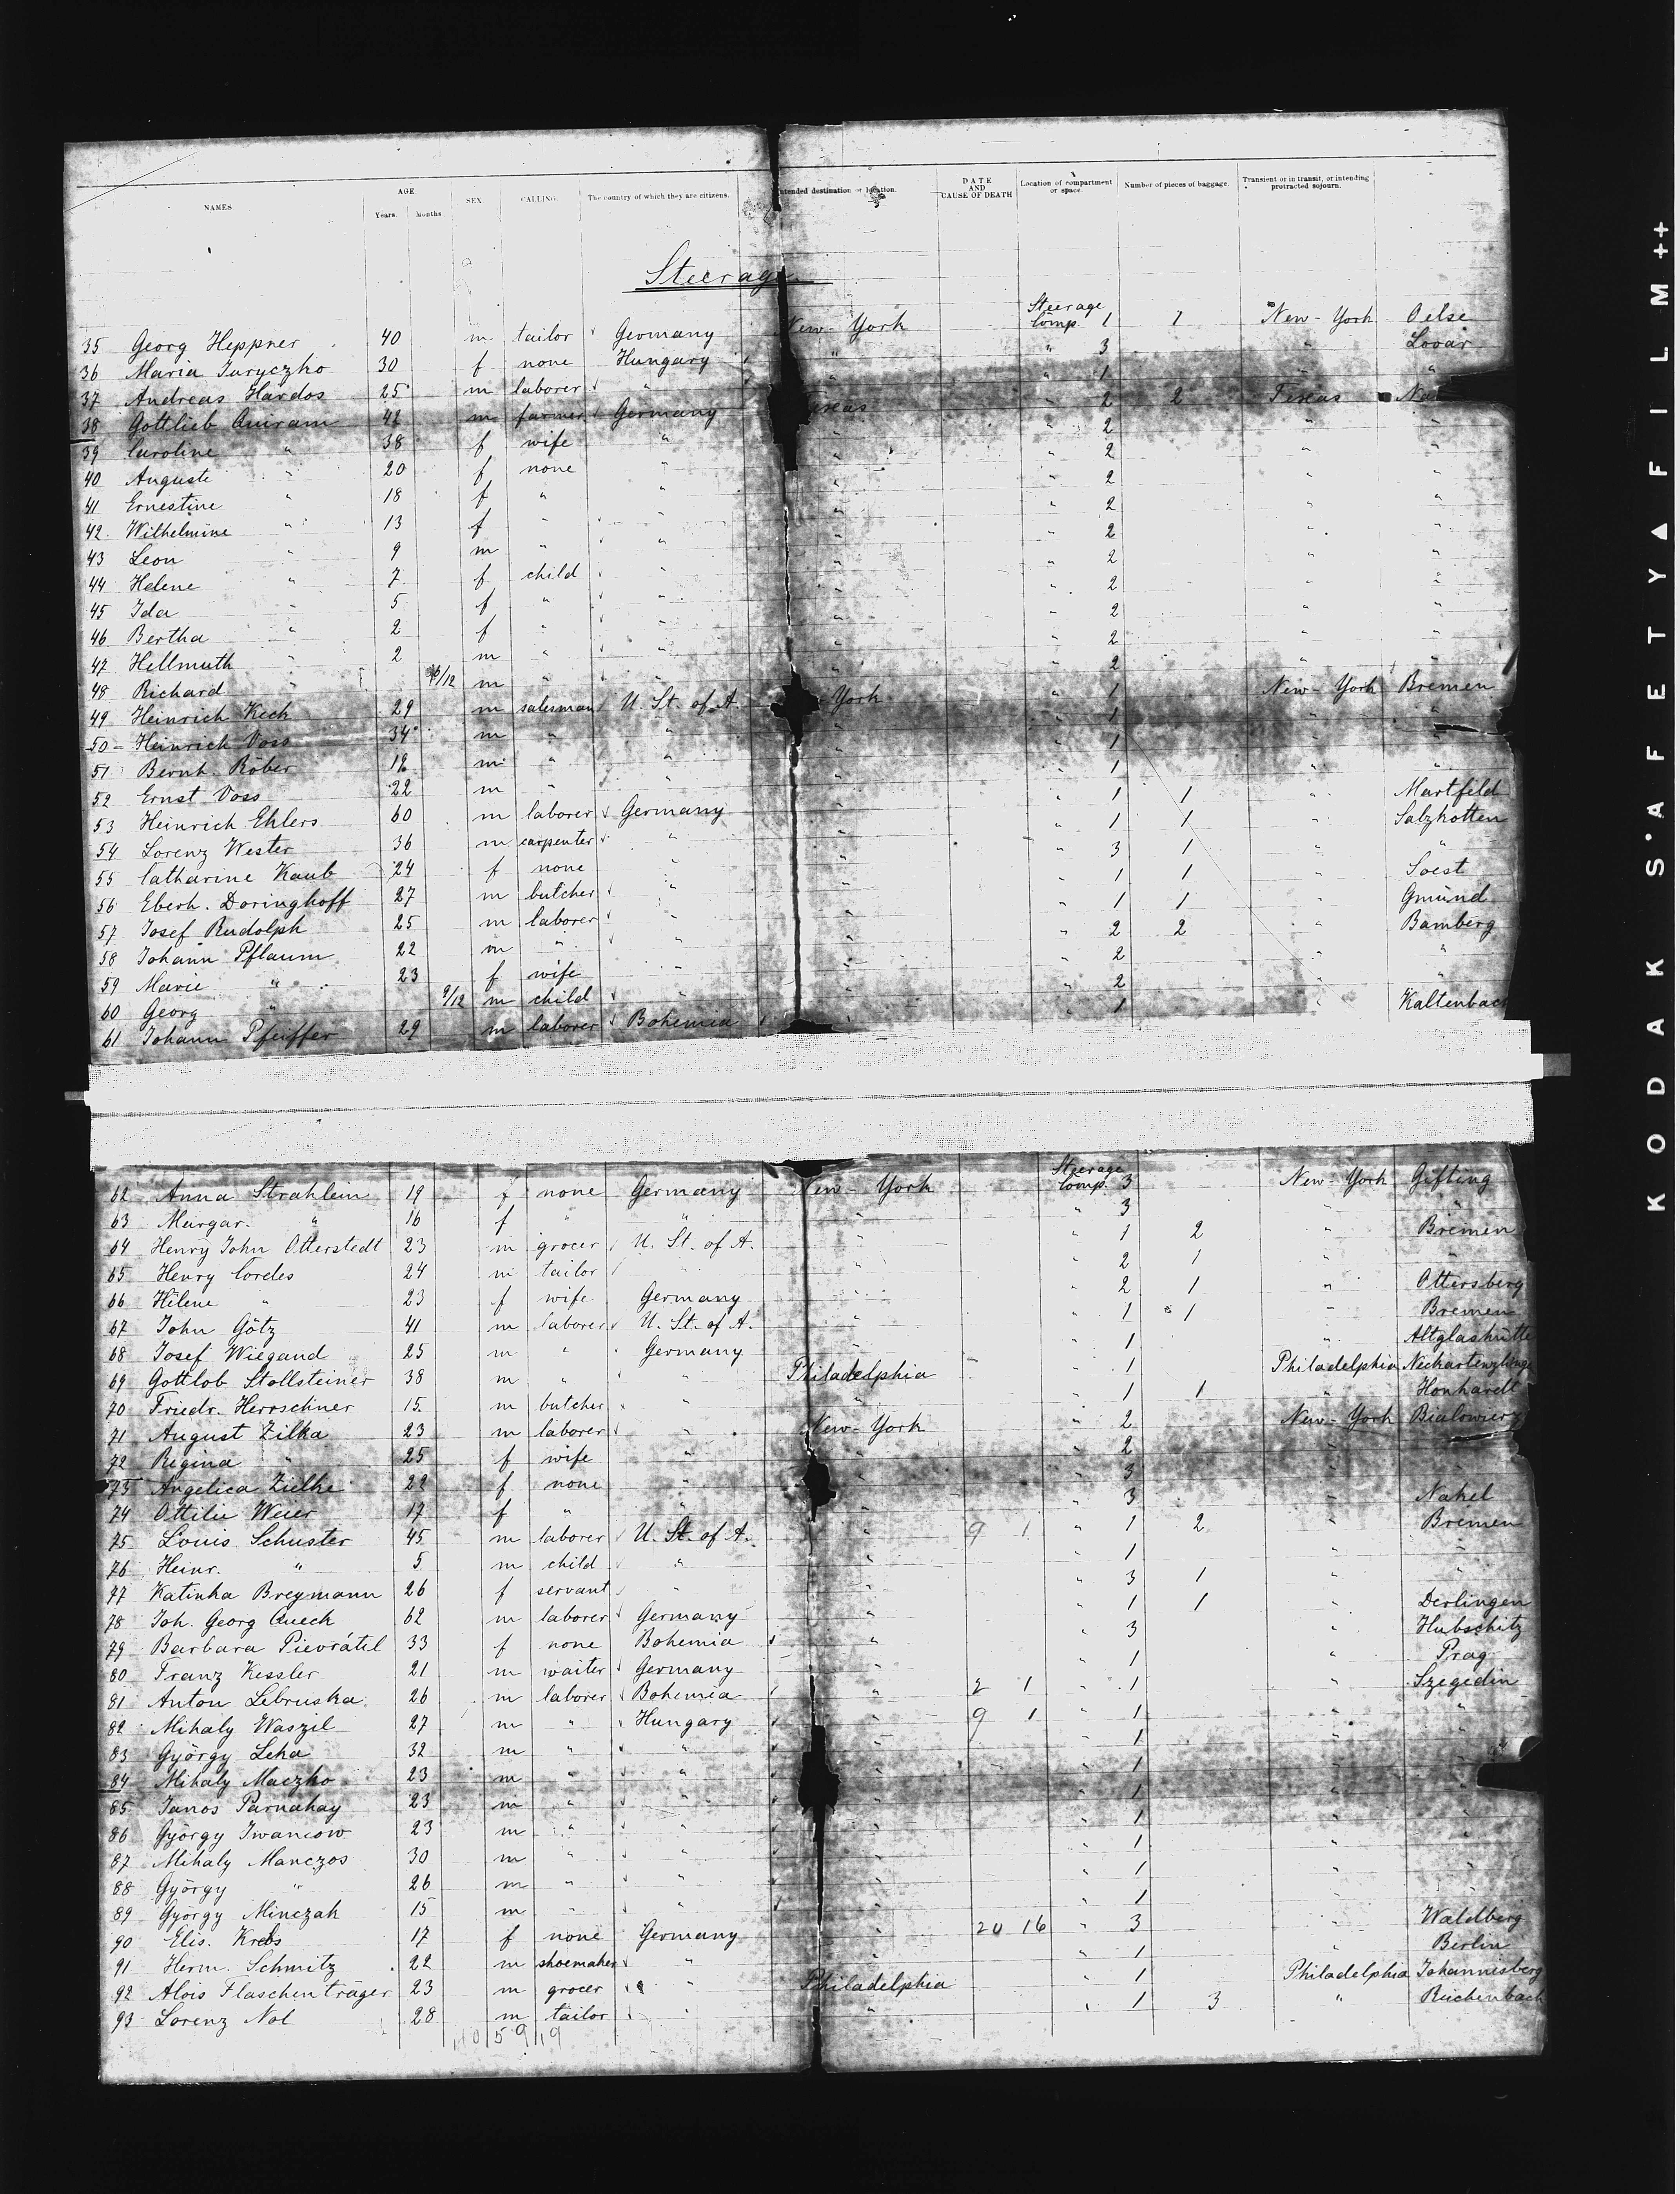 NAMES AGE Years. Months SEX CALLING The country of which they are citizens. Intended destination or location. DATE AND CAUSE OF DEATH Location of compartment or space Number of pieces of baggage. Transient or in transit, or intending protracted sojourn.
Steerage
35 Georg Heppner 40 m tailor Germany New-York Steerage Comp. 1 1 New-York Oelse
36 Maria Juryczko 30 f none Hungary " " 3 " Lovar
37 Andreas Hardos 25 m laborer " " " 1 " "
38 Gottlieb Quiram 42 m farmer Germany " 2 2 Texas
39 Caroline " 38 f wife " " " 2 " "
40 Auguste " 20 f none " " " 2 " "
41 Ernestine " 18 f " " " " 2 " "
42 Wilhelmine " 13 f " " " " 2 " "
43 Leon " 9 m " " " " 2 " "
44 Helene " 7 f child " " " 2 " "
45 Ida " 5 f " " " " 2 " "
46 Bertha " 2 f " " " " 2 " "
47 Hellmuth " 2 m " " " " 2 " "
48 Richard " m " " " " 2 " "
49 Heinrich Keck 29 m salesman U. St. of A. York " 1 New-York Bremen
50 Heinrich Voss 34 m " " " " 1 " "
51 Bernh. Röber 19 m " " " " 1 " "
52 Ernst Voss 22 m " " " " 1 " "
53 Heinrich Ehlers 60 m laborer Germany " " 1 1 " Martfeld
54 Lorenz Wester 36 m carpenter " " " 1 1 " Salzkotten
55 Catharine Kaub 24 f none " " " 3 1 " "
56 Eberh. Doringhoff 27 m butcher " " " 1 1 " Soest
57 Josef Rudolph 25 m laborer " " " 1 1 " Gmünd
58 Johann Pflaum 22 m " " " " 2 2 " Bamberg
59 Marie " 23 f wife " " " 2 " "
60 Georg " 9/12 m child " " " 2 " "
61 Johann Pfeiffer 29 m laborer Bohemia " " 1 " Kaltenbach
62 Anna Strahlein 19 f none Germany New-York Steerage Comp. 3 New-York Gifting
63 Margar. " 16 f " " " " 3 " "
64 Henry John Otterstedt 23 m grocer U. St. of A. " " 1 2 " Bremen
65 Henry Cordes 24 m tailor " " " 2 1 " "
66 Helene " 23 f wife Germany " " 2 1 " Ottersberg
67 John Götz 41 m laborer U. St. of A. " " 1 1 " Bremen
68 Josef Wiegand 25 m " Germany " " 1 " Altglashütte
69 Gottlob Stollsteiner 38 m " " Philadelphia " 1 Philadelphia Neckartenzlingen
70 Friedr. Herrschner 15 m butcher " " " 1 1 " Honhardt
71 August Zilka 23 m laborer " New-York " 2 New-York
72 Regina " 25 f wife " " " 2 " "
73 Angelica Zielke 22 f none " " " 3 " "
74 Ottilie Weier 17 f " " " " 3 " Nakel
75 Louis Schuster 45 m laborer U. St. of A. " 9 1 " 1 2 " Bremen
76 Heinr. " 5 m child " " " 1 " "
77 Katinka Breymann 26 f servant " " " 3 1 " "
78 Joh. Georg Queck 62 m laborer Germany " " 1 1 " Derlingen
79 Barbara Pievrátil 33 f none Bohemia " " 3 " Hubschitz
80 Franz Kessler 21 m waiter Germany " " 1 " Prag
81 Anton Lebruska 26 m laborer Bohemia " 2 1 " 1 " Szegedin
82 Mihaly Waszil 27 m " Hungary " 9 1 " 1 " "
83 György Leha 32 m " " " " 1 " "
84 Mihaly Maczko 23 m " " " " 1 " "
85 Janos Parnahay 23 m " " " " 1 " "
86 György Iwancow 23 m " " " " 1 " "
87 Mihaly Manczos 30 m " " " " 1 " "
88 György " 26 m " " " " 1 " "
89 György Minczak 15 m " " " " 1 " "
90 Elis. Krebs 17 f none Germany " 20 16 " 3 " Waldberg
91 Herm. Schmitz 22 m shoemaker " " " 1 " Berlin
92 Alois Flaschenträger 23 m grocer " Philadelphia " 1 Philadelphia Johannesberg
93 Lorenz Nol 28 m tailor " " " 1 3 " Reichenbach
KODAK S'AFETY▲FILM ++